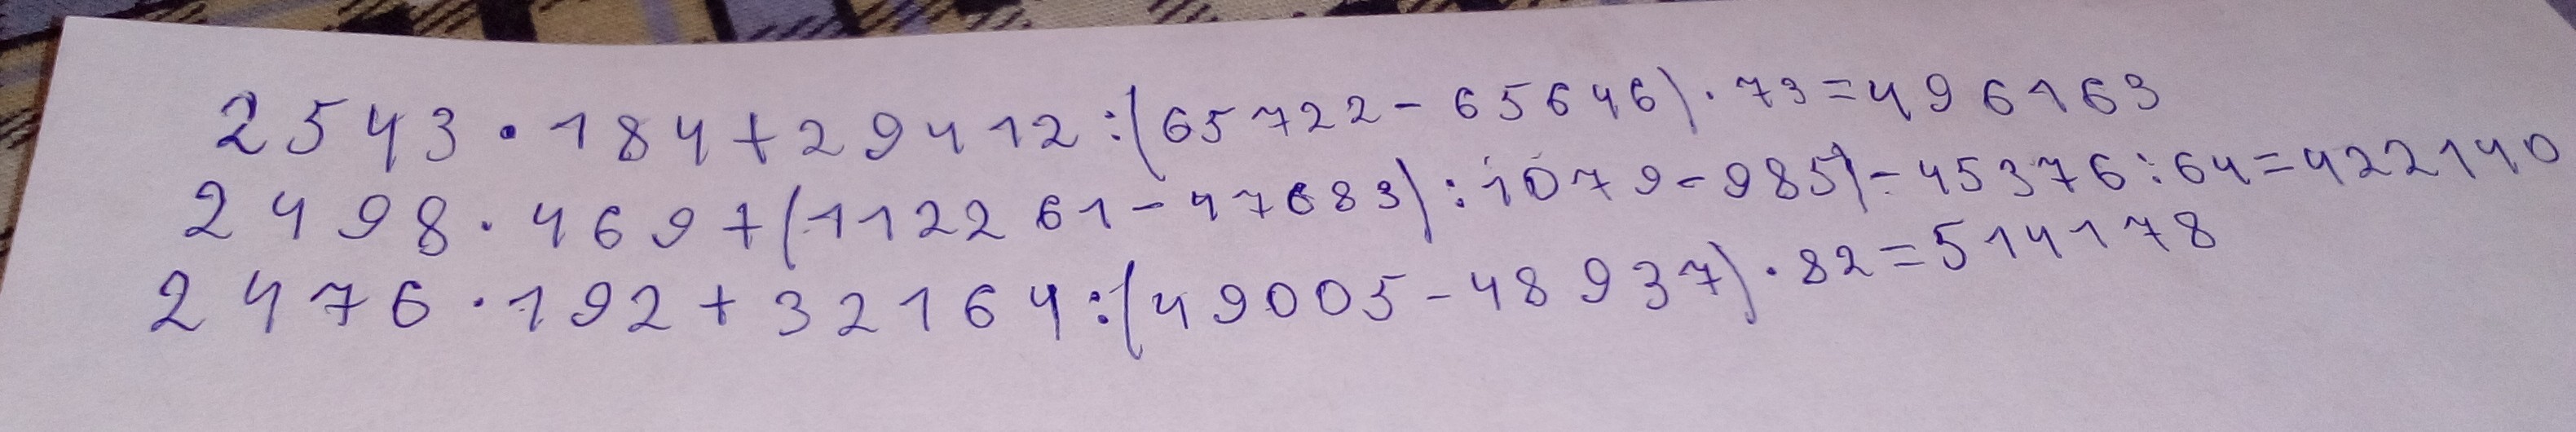 2543·184+29412:(65722-65646)·73=496163
2498·469+(112261-47683):1079-985)-45376:64=422140
2476·192+32164:(49005-48937)·82=514178